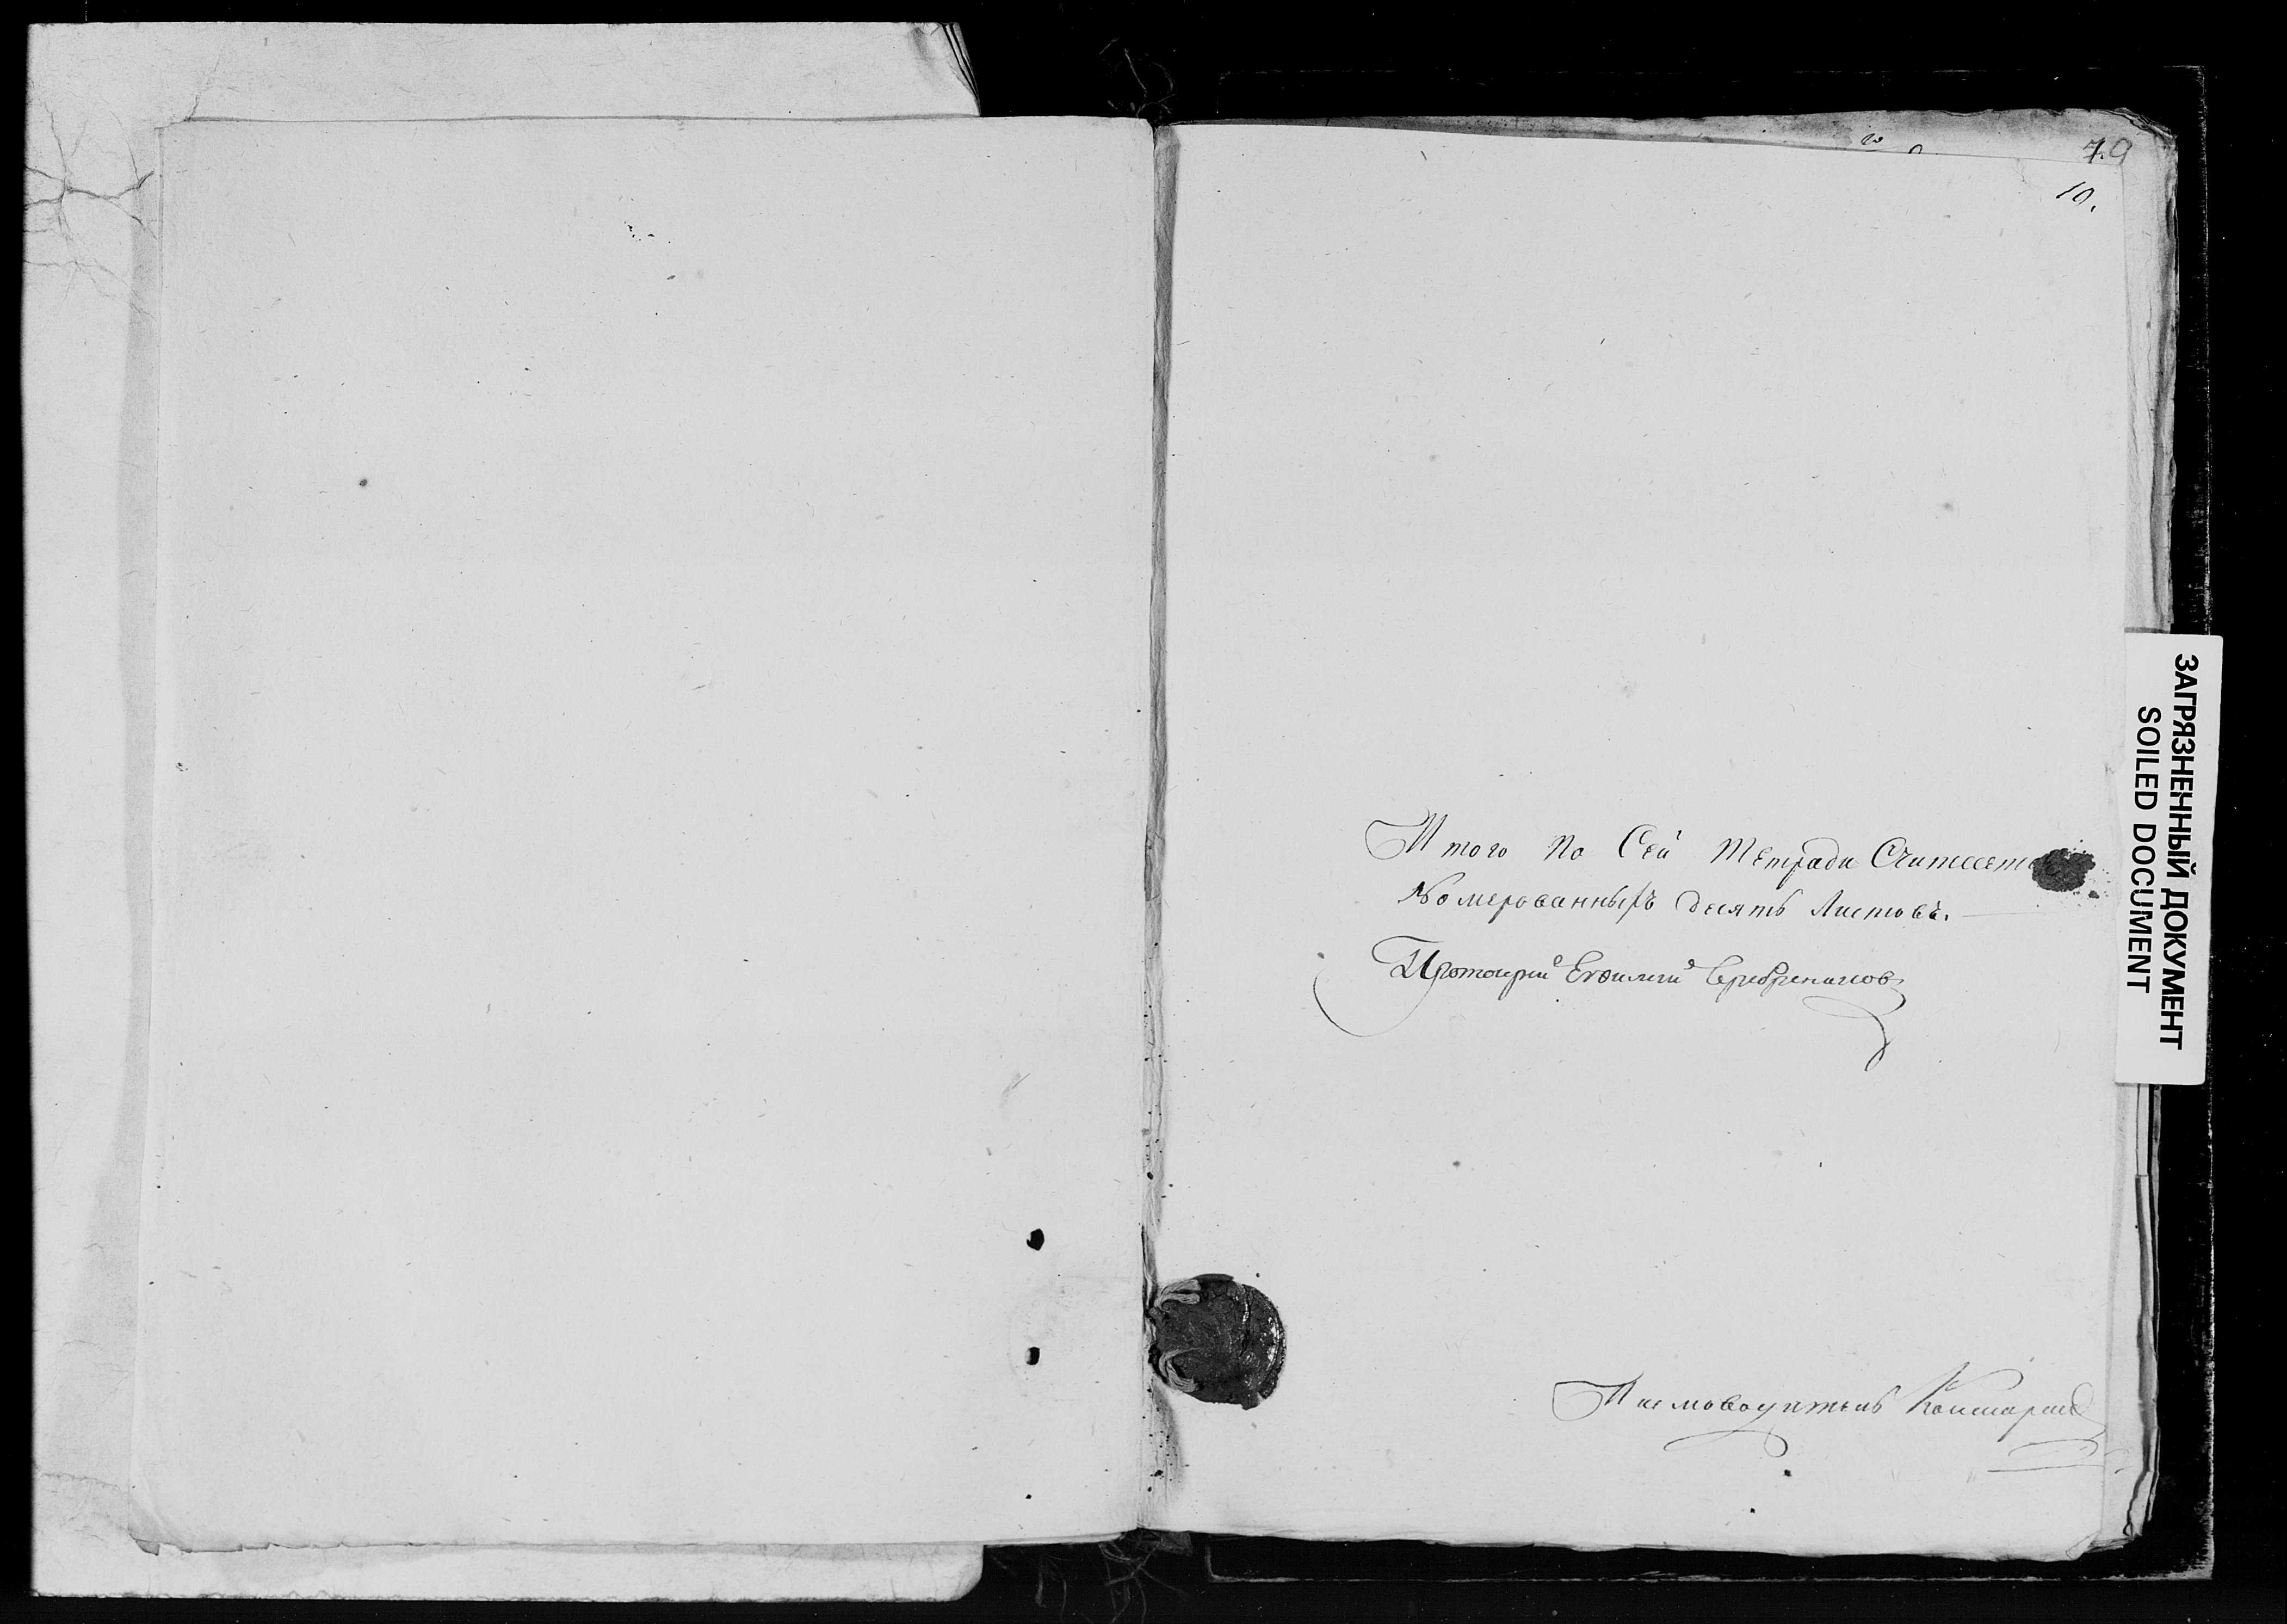 79
10.
Итого по Сей Тетради Считает
Номерованныхъ десять Листовъ.
Протоиерей Евфимий Серебрениковъ
Письмоводитель
ЗАГРЯЗНЕННЫЙ ДОКУМЕНТ
SOILED DOCUMENT